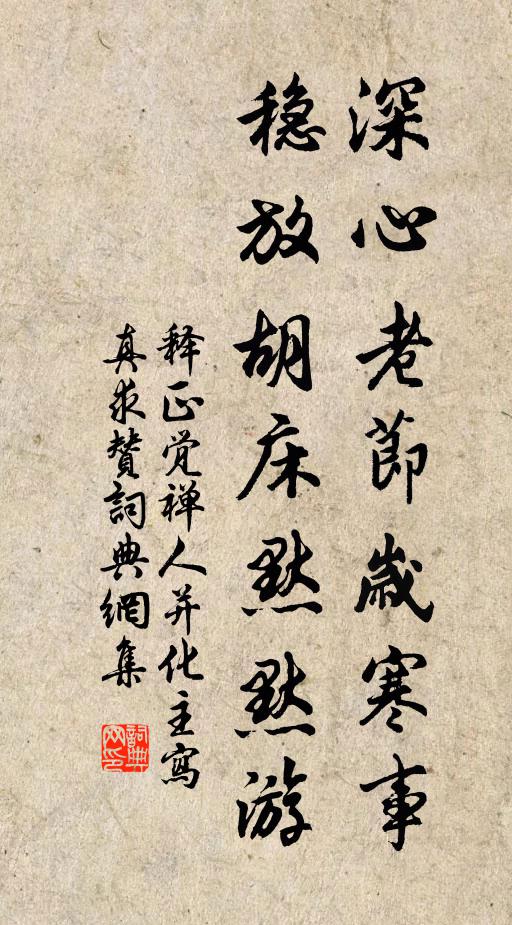 深心老節歲寒事
穩放胡床默默游
释正觉禅人并化主寫
真求贊詞典網集
詞典网印